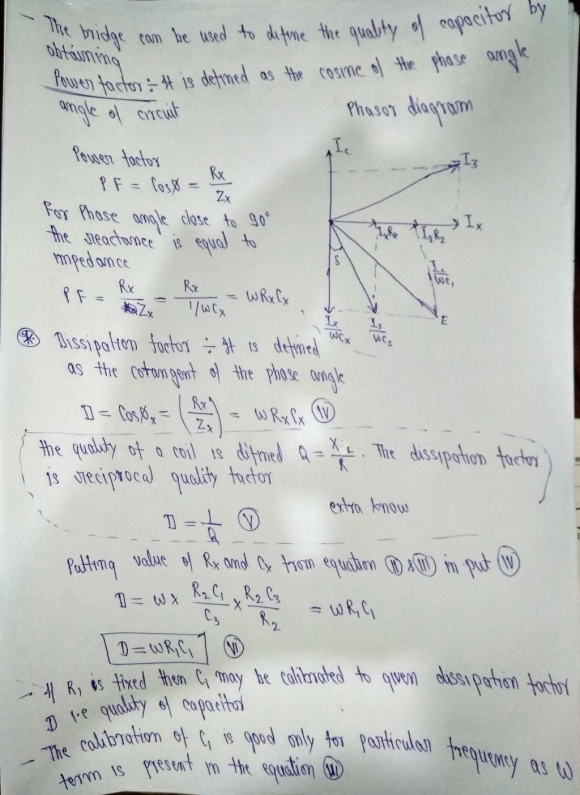 - The bridge can be used to difine the quality of capacitor by
obtaining
Power factor ÷ It is defined as the cosine of the phase angle
angle of circuit
Phasor diagram
Power factor
PF = Cosø = Rx/Zx
For Phase angle close to 90°
the reactance is equal to
impedance
PF = Rx/Zx = Rx/(1/ωCx) = ωRxCx
Ic
I3
Ix
IxRx
I2R2
δ
Ix/ωCx
I3/ωC3
E
* Dissipation factor ÷ It is defined
as the cotangent of the phase angle
D = Cosøx = (Rx/Zx) = ωRxCx (IV)
the quality of a coil is difined Q = XL/R. The dissipation factor
is reciprocal quality factor
D = 1/Q (V)
extra know
Putting value of Rx and Cx from equation (II) & (III) in put (IV)
D = ω× R2C1/C3 × R2C3/R2 = ωR1C1
D = ωR1C1 (VI)
- If R1 is fixed then C1 may be calibrated to given dissipation factor
D i.e quality of capacitor
- The calibration of C1 is good only for particular frequency as ω
term is present in the equation